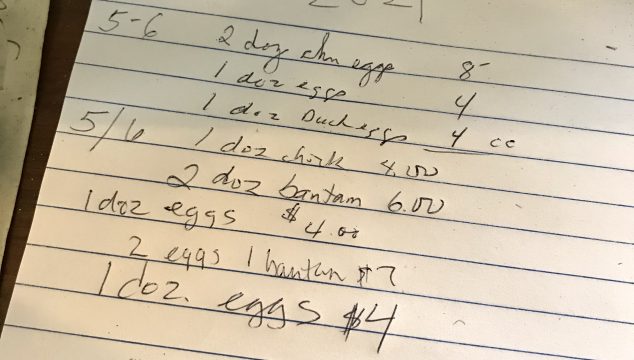 2021
5-6 2 doz chn eggs 8-
1 doz eggs 4
1 doz Duck eggs 4 cc
5/6 1 doz chick 4.00
2 doz bantam 6.00
1 doz eggs $4.00
2 eggs 1 bantam $7
1 doz. eggs $4